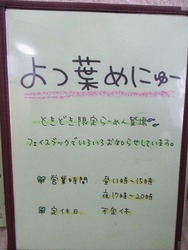 よつ葉めにゅー
ときどき限定らーめん登場
フェイスブックでいろいろお知らせしています。
営業時間 昼11時〜15時
夜17時〜20時
定休日 不定休